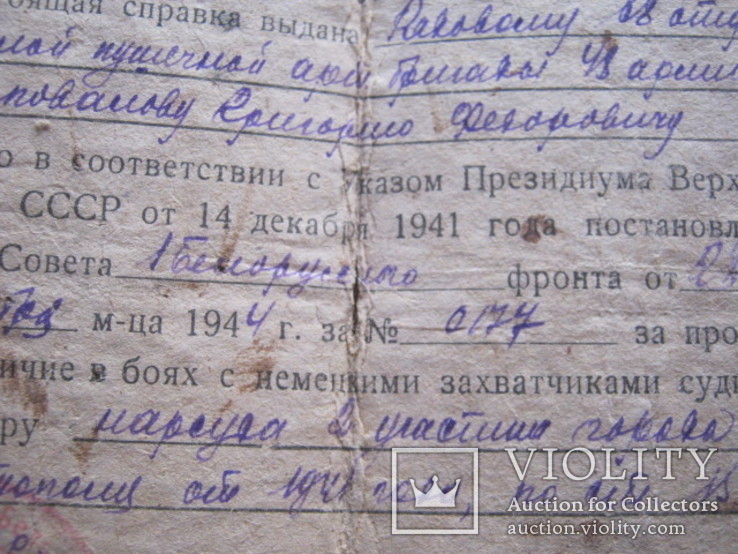 оящая справка выдана Рядовому 68 отд
пушечной арт бригады 48 арми
повалову Григорию Федоровичу
о в соответствии с указом Президиума Верх
СССР от 14 декабря 1941 года постановл
Совета 1 Белорусского фронта от
м-ца 1944 г. за № 0177 за про
ичие в боях с немецкими захватчиками суди
ру нарсуда 2 участка города
поля от 1941 года, по
VIOLITY
Auction for Collectors
auction.violity.com